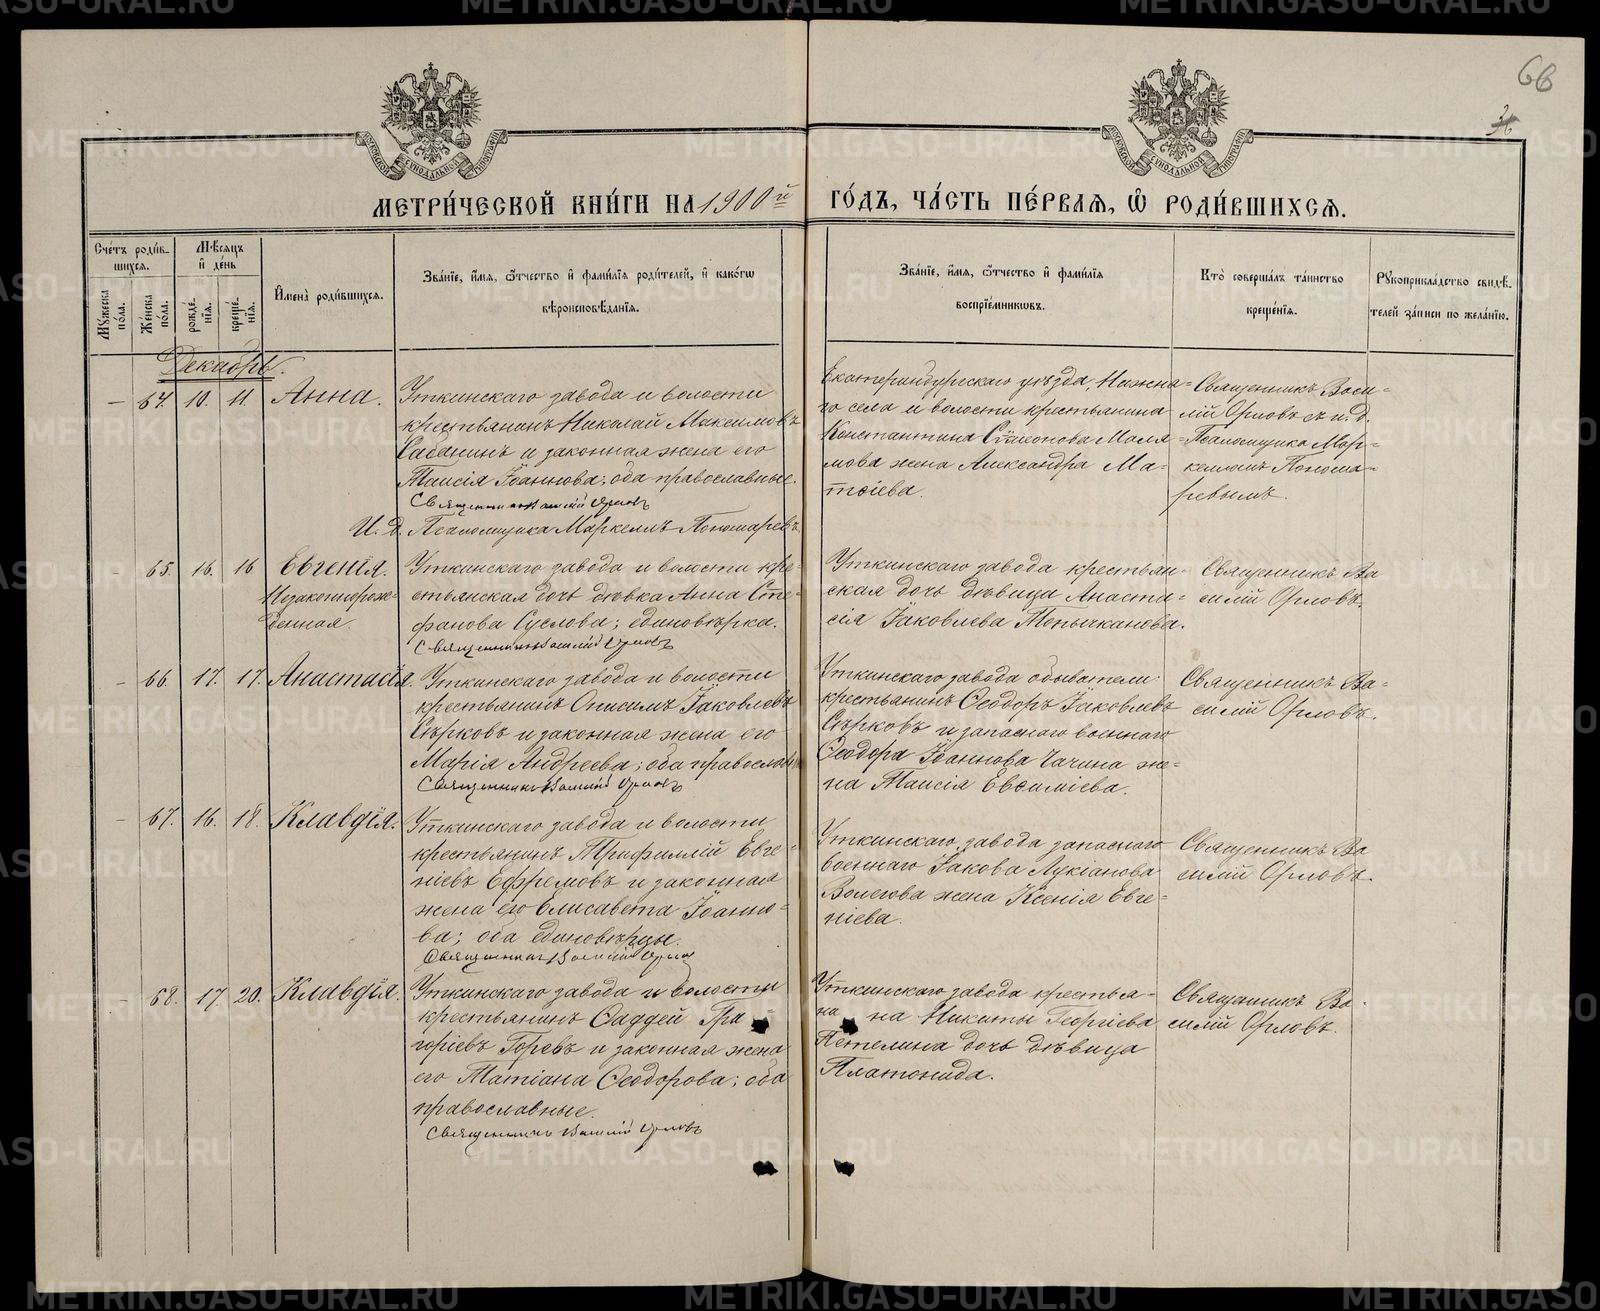 66
МЕТРИ́ЧЕСКОЙ КНИ́ГИ НА 1900й ГО́ДЪ, ЧА́СТЬ ПЕ́РВАЯ, Ѽ РОДИ́ВШИХСЯ.
Сче́тъ роди́в-
шихся.
Мѣсяцъ
и҆ де́нь
Му́жеска
по́ла.
Же́нска
по́ла.
рожде́-
нїя.
креще́-
нїя.
И҆мена̀ роди́вшихся.
Зва́нїе, и҆́мя, ѻ҆́тчество и҆ фами́лїя роди́телей, и҆ како́гѡ
вѣроисповѣ́данїя.
Зва́нїе, и҆́мя, ѻ҆́тчество и҆ фами́лїя
воспрїе́мникѡвъ.
Кто̀ соверша́лъ та́инство
креще́нїя.
Рꙋкоприкла́дство свидѣ́-
телей за́писи по жела́нїю.
Декабрь.
– 64. 10. 11. Анна.
Уткинскаго завода и волости
крестьянинъ Николай Максимовъ
Сабанинъ и законная жена его
Таисія Іоаннова; оба православные.
Священникъ Василій Орловъ
И. д. Псаломщика Маркеллъ Пономаревъ.
Екатеринбургскаго уѣзда, Нижня-
го села и волости крестьянина
Константина Сумеонова Маля-
мова жена Александра Ма-
тѳіева.
Священникъ Васи-
лій Орловъ съ и. д.
Псаломщика Мар-
келломъ Понома-
ревымъ.
– 65. 16. 16 Евгенія.
Незаконнорож-
денная.
Уткинскаго завода и волости кре-
стьянская дочь дѣвка Анна Сте-
фанова Суслова; единовѣрка.
Священникъ Василій Орловъ
Уткинскаго завода крестьян-
ская дочь дѣвица Анаста-
сія Іаковлева Тепычканова.
Священникъ Ва
силій Орловъ.
– 66. 17. 17. Анастасія.
Уткинскаго завода и волости
крестьянинъ Онисимъ Іаковлевъ
Сѣрковъ и законная жена его
Марія Андреева; оба православн
Священникъ Василій Орловъ
Уткинскаго завода обыватели:
крестьянинъ Ѳеодоръ Іаковлевъ
Сѣрковъ и запаснаго военнаго
Ѳеодора Іоаннова Чачина же-
на Таисія Евѳиміева.
Священникъ Ва-
силій Орловъ.
– 67. 16. 18. Клавдія.
Уткинскаго завода и волости
крестьянинъ Трифиллій Евге-
ніевъ Ефремовъ и законная
жена его Елисавета Іоанно-
ва; оба единовѣрцы.
Священникъ Василій Орловъ
Уткинскаго завода запаснаго
военнаго Іакова Лукіанова
Волегова жена Ксенія Евге-
ніева.
Священникъ Ва
силій Орловъ.
– 68. 17 20. Клавдія.
Уткинскаго завода и волости
крестьянинъ Ѳаддей Гри-
горіевъ Горевъ и законная жена
его Татіана Ѳеодорова; оба
православные.
Священникъ Василій Орловъ
Уткинскаго завода крестья-
на Никиты Георгіева
Петелина дочь дѣвица
Платонида.
Священникъ Ва-
силій Орловъ.
METRIKI.GASO-URAL.RU